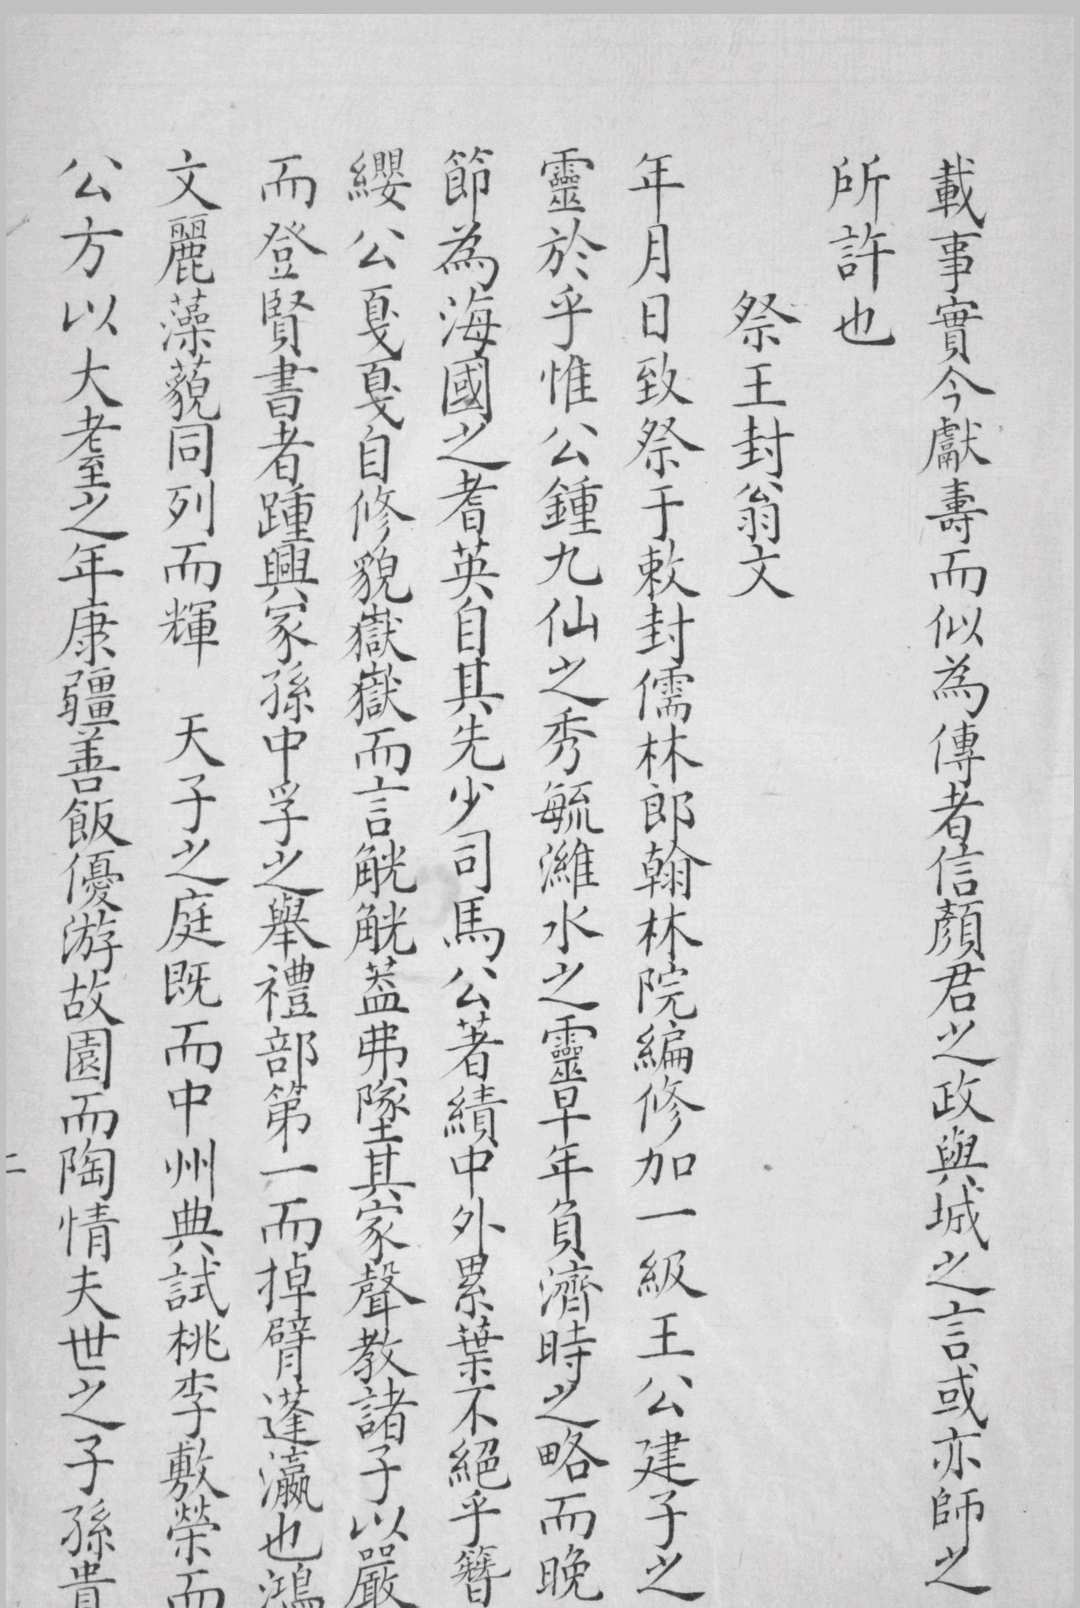 載事實今獻壽而似為傳者信顏君之政與城之言或亦師之
所許也
祭王封翁文
年月日致祭于敕封儒林郎翰林院編修加一級王公建子之
靈於乎惟公鍾九仙之秀毓濰水之靈早年負濟時之略而晚
節為海國之耆英自其先少司馬公著績中外累葉不絕乎簪
纓公戛戛自修貌嶽嶽而言觥觥葢弗墜其家聲教諸子以嚴
而登賢書者踵興冢孫中孚之舉禮部第一而掉臂蓬瀛也鴻
文麗藻藐同列而輝 天子之庭既而中州典試桃李敷榮而
公方以大耋之年康疆善飯優游故園而陶情夫世之子孫貴
二